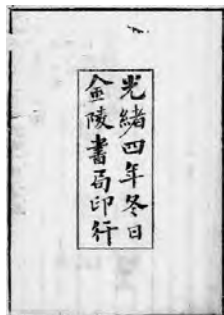 光緒四年冬日
金陵書局印行